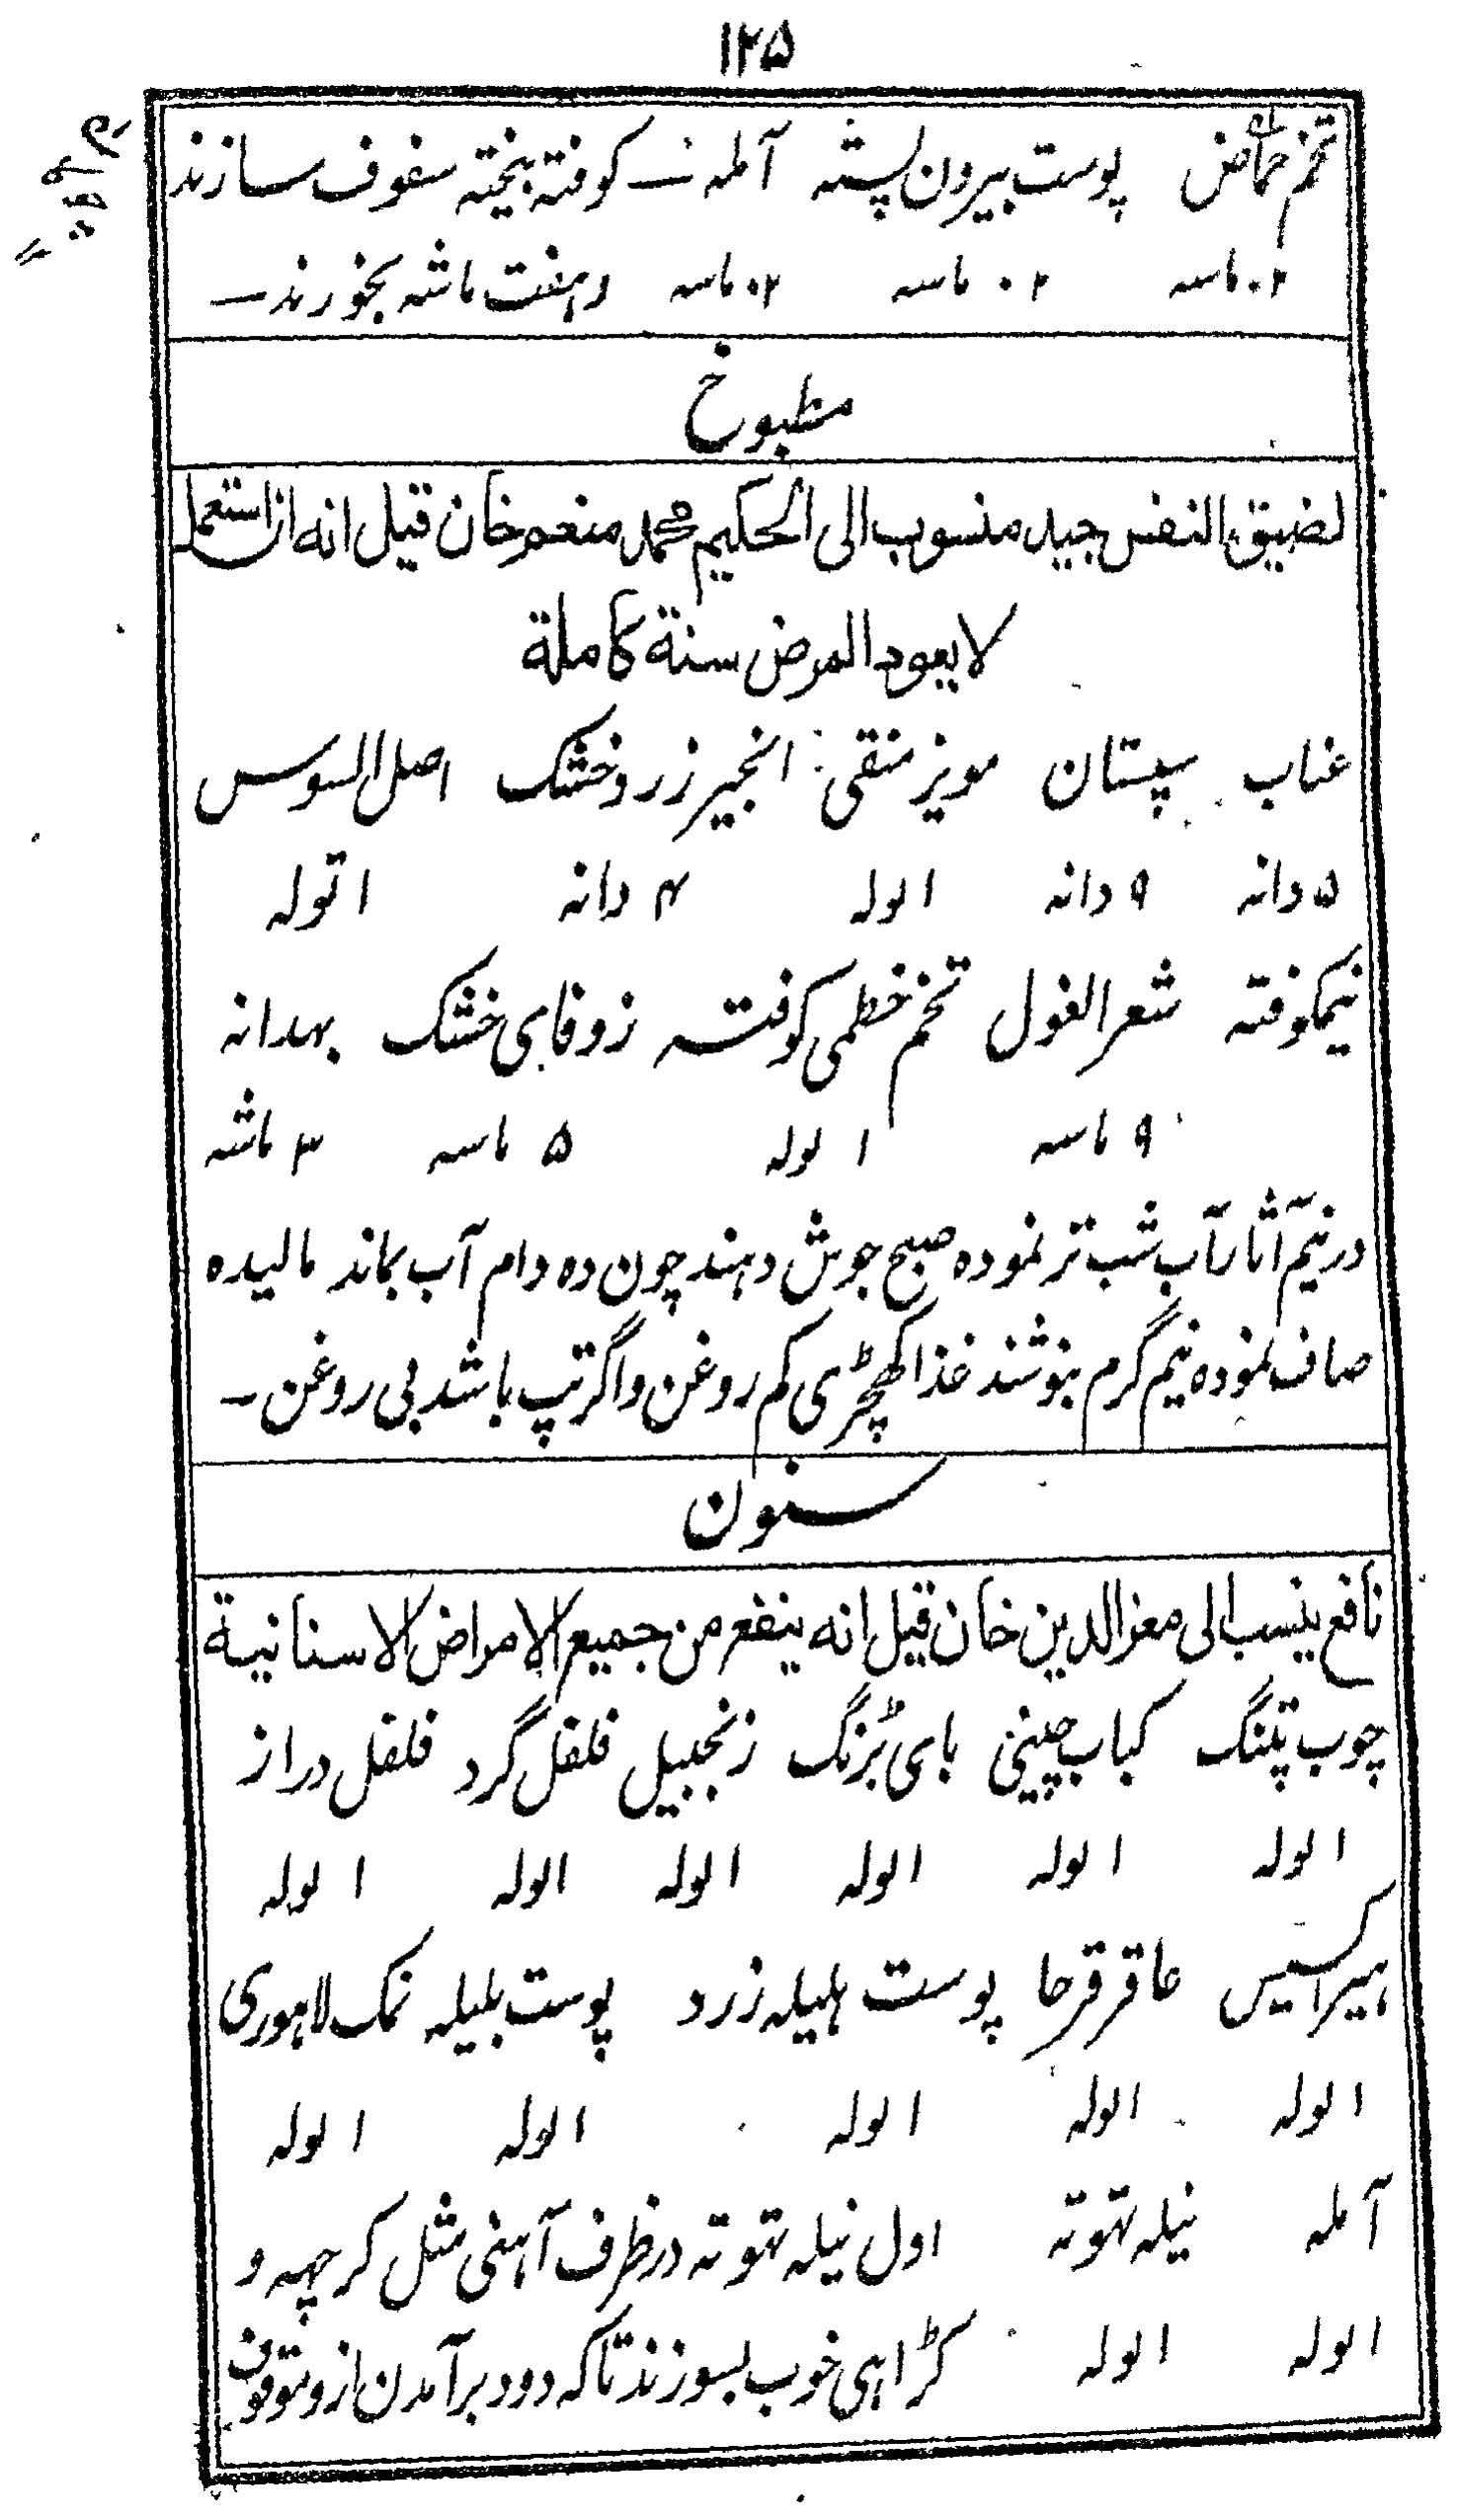 ۱۲۵
تخم حماض پوست بیرون پسته آمله کوفته بیخته سفوف سازند
۲۰ ماسه ۲۰ ماسه ۲۰ ماسه دہفت ماشه بخورند
مطبوخ
لضیق النفس جید منسوب الی الحکیم محمد منعم خان قیل انه ان استعمل
لا یعود المرض سنة کاملة
عناب سپستان مویز منقی انجیر زرد خشک اصل السوس
۵ دانه ۹ دانه ۱ توله ۴ دانه ۱ توله
نیمکوفته شعر الغول تخم خطمی کوفته زوفای خشک بهدانه
۹ ماسه ۱ توله ۵ ماسه ۳ ماشه
در نیم آثار آب شب تر نموده صبح جوش دہند چون ده دام آب بماند مالیده
صاف نموده نیم گرم بنوشند غذا کھچڑی کم روغن و اگر تپ باشد بی روغن ۔
سنون
نافع ینسب الی معز الدین خان قیل انه ینفع من جمیع الامراض الاسنانیة
چوب پتنگ کباب چینی بای بڑنگ زنجبیل فلفل گرد فلفل دراز
۱ توله ۱ توله ۱ توله ۱ توله ۱ توله ۱ توله
ہیرا کسیس عاقر قرحا پوست ہلیله زرد پوست بلیله نمک لاہوری
۱ توله ۱ توله ۱ توله ۱ توله ۱ توله
آمله نیله تهوته اول نیله تهوته در ظرف آہنی مثل کرچهه و
۱ توله ۱ توله کڑاہی خوب بسوزند تا که دود برآمدن ازو موقوف